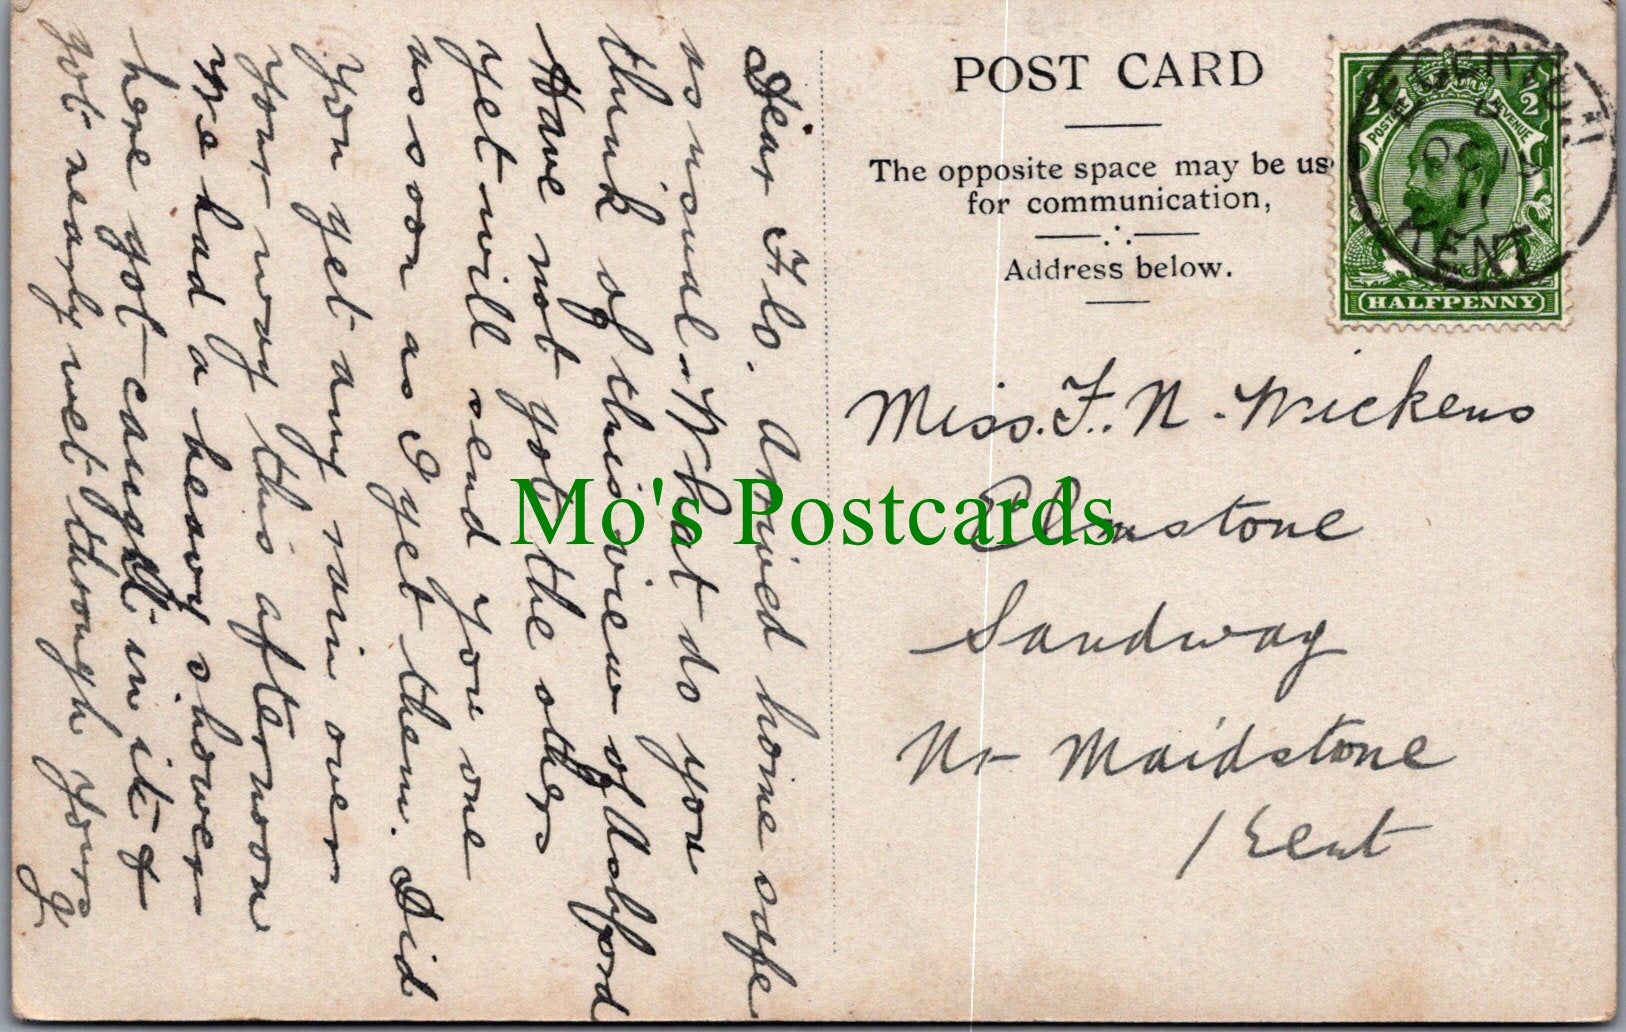 POST CARD
The opposite space may be us
for communication,
Address below.
POSTAGE REVENUE
1/2
HALFPENNY
EGERTON
OC 19
11
KENT
Miss. F. N. Wickens
Elmstone
Sandway
Nr Maidstone
Kent
Mo's Postcards
Dear Flo. Arrived home safe
as usual. What do you
think of this view of Ashford
Have not got the others
yet will send you one
as soon as I get them. Did
you get any rain over
your way this afternoon
We had a heavy shower
here got caught in it &
got nearly wet through yours
G